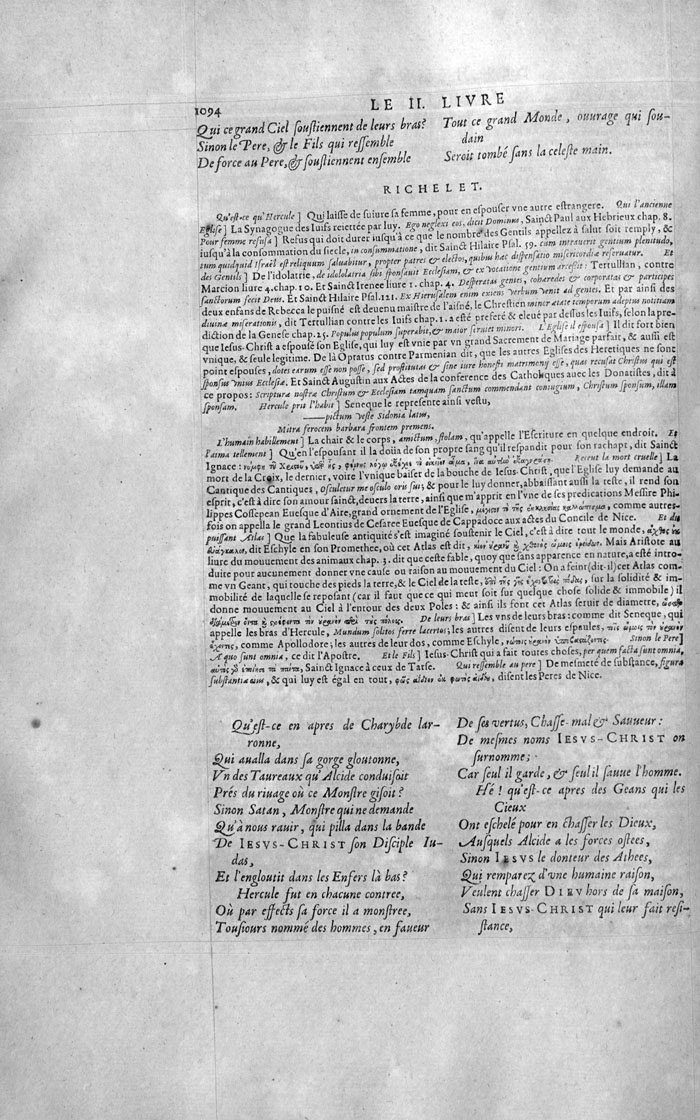 1094
LE II. LIVRE
Qui ce grand Ciel soustiennent de leurs bras?
Sinon le Pere, & le Fils qui ressemble
De force au Pere, & soustiennent ensemble
Tout ce grand Monde, ouurage qui sou-
dain
Seroit tombé sans la celeste main.
RICHELET.
Qu'est-ce qu'Hercule] Qui laisse de suiure sa femme, pour en espouser vne autre estrangere. Qui l'ancienne
Eglise] La Synagogue des Iuifs reiettée par luy. Ego neglexi eos, dicit Dominus, Sainct Paul aux Hebrieux chap. 8.
Pour femme refusa] Refus qui doit durer iusqu'à ce que le nombre des Gentils appellez à salut soit remply, &
iusqu'à la consommation du siecle, in consummatione, dit Sainct Hilaire Psal. 59. cum intrauerit gentium plenitudo,
tum quidquid Israël est reliquum saluabitur, propter patres & electos, quibus hæc dispensatio misericordiæ reseruatur. Et
des Gentils] De l'idolatrie, de idololatria sibi sponsauit Ecclesiam, & ex vocatione gentium arcessit: Tertullian, contre
Marcion liure 4. chap. 10. Et Sainct Irenee liure 1. chap. 4. Desperatas gentes, cohæredes & corporatas & participes
sanctorum fecit Deus. Et Sainct Hilaire Psal. 121. Ex Hierusalem enim exiens verbum venit ad gentes. Et par ainsi des
deux enfans de Rebecca le puisné est deuenu maistre de l'aisné, le Chrestien minor ætate temporum adeptus notitiam
diuinæ miserationis, dit Tertullian contre les Iuifs chap. 1. a esté preferé & eleué par dessus les Iuifs, selon la pre-
diction de la Genese chap. 25. Populus populum superabit, & maior seruiet minori. L'Eglise il espousa] Il dit fort bien
que Iesus-Christ a espousé son Eglise, qui luy est vnie par vn grand Sacrement de Mariage parfait, & aussi est
vnique, & seule legitime. De là Optatus contre Parmenian dit, que les autres Eglises des Heretiques ne sont
point espouses, dotes earum esse non posse, sed prostitutas & sine iure honesti matrimonij esse, quas recusat Christus qui est
sponsus vnius Ecclesiæ. Et Sainct Augustin aux Actes de la conference des Catholiques auec les Donatistes, dit à
ce propos: Scriptura nostra Christum & Ecclesiam tamquam sanctum commendant coniugium, Christum sponsum, illam
sponsam. Hercule prit l'habit] Seneque le represente ainsi vestu,
pictum veste Sidonia latus,
Mitra ferocem barbara frontem premens.
L'humain habillement] La chair & le corps, amictum, stolam, qu'appelle l'Escriture en quelque endroit. Et
l'aima tellement] Qu'en l'espousant il la doüa de son propre sang qu'il respandit pour son rachapt, dit Sainct
Ignace: Receut la mort cruelle] La
mort de la Croix, le dernier, voire l'vnique baiser de la bouche de Iesus-Christ, que l'Eglise luy demande au
Cantique des Cantiques, osculetur me osculo oris sui; & pour le luy donner, abbaissant aussi la teste, il rend son
esprit, c'est à dire son amour sainct, deuers la terre, ainsi que m'apprit en l'vne de ses predications Messire Phi-
lippes Cossepean Euesque d'Aire, grand ornement de l'Eglise, comme autres-
fois on appella le grand Leontius de Cesaree Euesque de Cappadoce aux actes du Concile de Nice. Et du
puissant Atlas] Que la fabuleuse antiquité s'est imaginé soustenir le Ciel, c'est à dire tout le monde,
dit Eschyle en son Promethee, où cet Atlas est dit, Mais Aristote au
liure du mouuement des animaux chap. 3. dit que ceste fable, quoy que sans apparence en nature, a esté intro-
duite pour aucunement donner vne cause ou raison au mouuement du Ciel: On a feint (dit-il) cet Atlas com-
me vn Geant, qui touche des pieds la terre, & le Ciel de la teste, sur la solidité & im-
mobilité de laquelle se reposant (car il faut que ce qui meut soit sur quelque chose solide & immobile) il
donne mouuement au Ciel à l'entour des deux Poles: & ainsi ils font cet Atlas seruir de diametre,
De leurs bras] Les vns de leurs bras: comme dit Seneque, qui
appelle les bras d'Hercule, Mundum solitos ferre lacertos; les autres disent de leurs espaules,
comme Apollodore; les autres de leur dos, comme Eschyle, Sinon le Pere]
A quo sunt omnia, ce dit l'Apostre. Et le Fils] Iesus-Christ qui a fait toutes choses, per quem facta sunt omnia,
Sainct Ignace à ceux de Tarse. Qui ressemble au pere] De mesmeté de substance, figura
substantiæ eius, & qui luy est égal en tout, disent les Peres de Nice.
Qu'est-ce en apres de Charybde lar-
ronne,
Qui aualla dans sa gorge gloutonne,
Vn des Taureaux qu'Alcide conduisoit
Prés du riuage où ce Monstre gisoit?
Sinon Satan, Monstre qui ne demande
Qu'à nous rauir, qui pilla dans la bande
De IESVS-CHRIST son Disciple Iu-
das,
Et l'engloutit dans les Enfers là bas?
Hercule fut en chacune contree,
Où par effects sa force il a monstree,
Tousiours nommé des hommes, en faueur
De ses vertus, Chasse-mal & Sauueur:
De mesmes noms IESVS-CHRIST on
surnomme;
Car seul il garde, & seul il sauue l'homme.
Hé! qu'est-ce apres des Geans qui les
Cieux
Ont eschelé pour en chasser les Dieux,
Ausquels Alcide a les forces ostees,
Sinon IESVS le donteur des Athees,
Qui remparez d'vne humaine raison,
Veulent chasser DIEV hors de sa maison,
Sans IESVS-CHRIST qui leur fait resi-
stance,